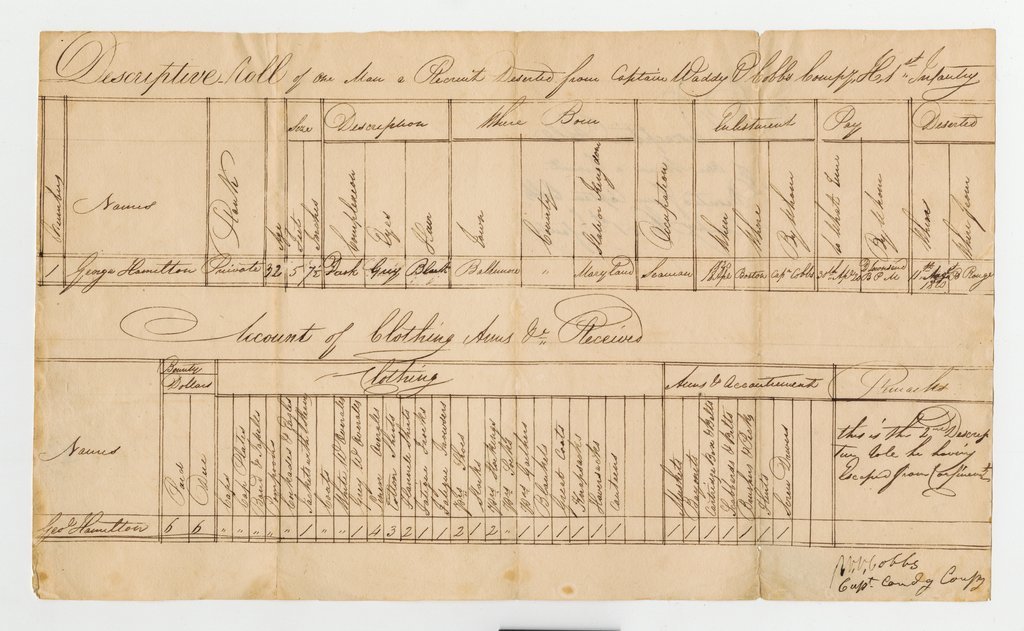 Descriptive Roll of one Man a Recruit Deserted from Captain Waddy V. Cobbs Compy. H. 1st Infantry
Size Description Where Born Enlistment Pay Deserted
Number Names Rank Age Feet Inches Complexion Eyes Hair Town County State or Kingdom Occupation When Where By Whom to What Time By Whom When Where from
1 George Hamilton Private 32 5 7½ Dark Grey Black Baltimore " Maryland Seaman Boston Capt Cobbs 30th Townsend P M 11th B Rouge
Account of Clothing Arms &c Received
Bounty Dollars Clothing Arms & Accoutrements Remarks
Names Paid Due Caps Cap Plates Band & Tassels Pompons Cockades & Eagles Coats White Wl Overalls Grey Wl Overalls Linen Overalls Cotton Shirts Flannel Shirts Fatigue Frocks Fatigue Trowsers Prs Shoes Prs Socks Prs Stockings Blankets Great Coats Knapsacks Haversacks Canteens Muskets Bayonets Cartridge Box & Belts Scabbards & Belts Brushes & Picks Flints Screw Drivers
this is the 2nd Descrip
tive Role he having
Escaped from Confinement
Geo. Hamilton 6 6 " " " " " 1 " 1 1 4 3 2 1 1 2 1 2 " 1 1 1 1 1 1 1 1 1 1 1 1 1
W V Cobbs
Capt. Comdg Compy